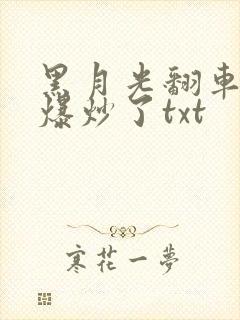 黑月光翻車
爆炒了txt
寒花一夢